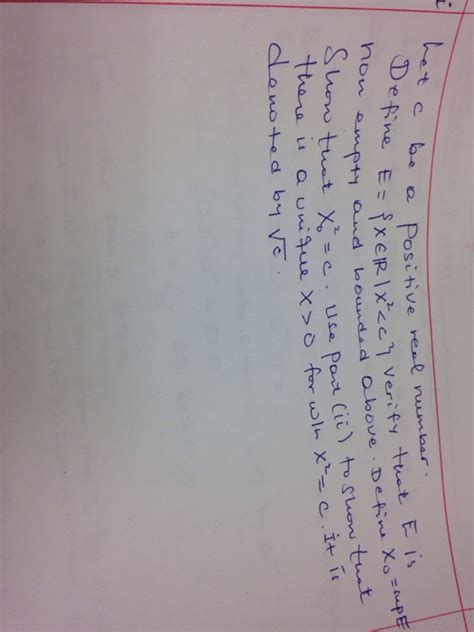 i
Let c be a positive real number.
Define E = {x∈ℝ | x² < c} verify that E is
non empty and bounded above. Define x₀ = sup E
Show that x₀² = c. Use part (ii) to show that
there is a unique x > 0 for w/h x² = c. It is
denoted by √c.